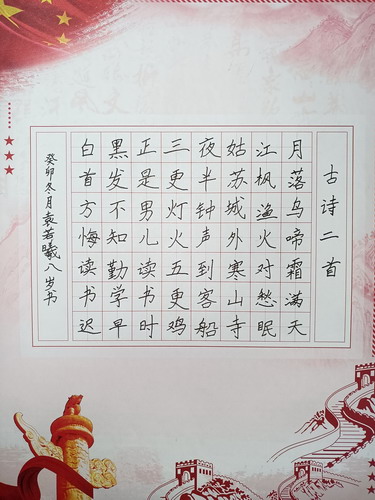 古诗二首
月落乌啼霜满天
江枫渔火对愁眠
姑苏城外寒山寺
夜半钟声到客船
三更灯火五更鸡
正是男儿读书时
黑发不知勤学早
白首方悔读书迟
癸卯冬月袁若曦八岁书